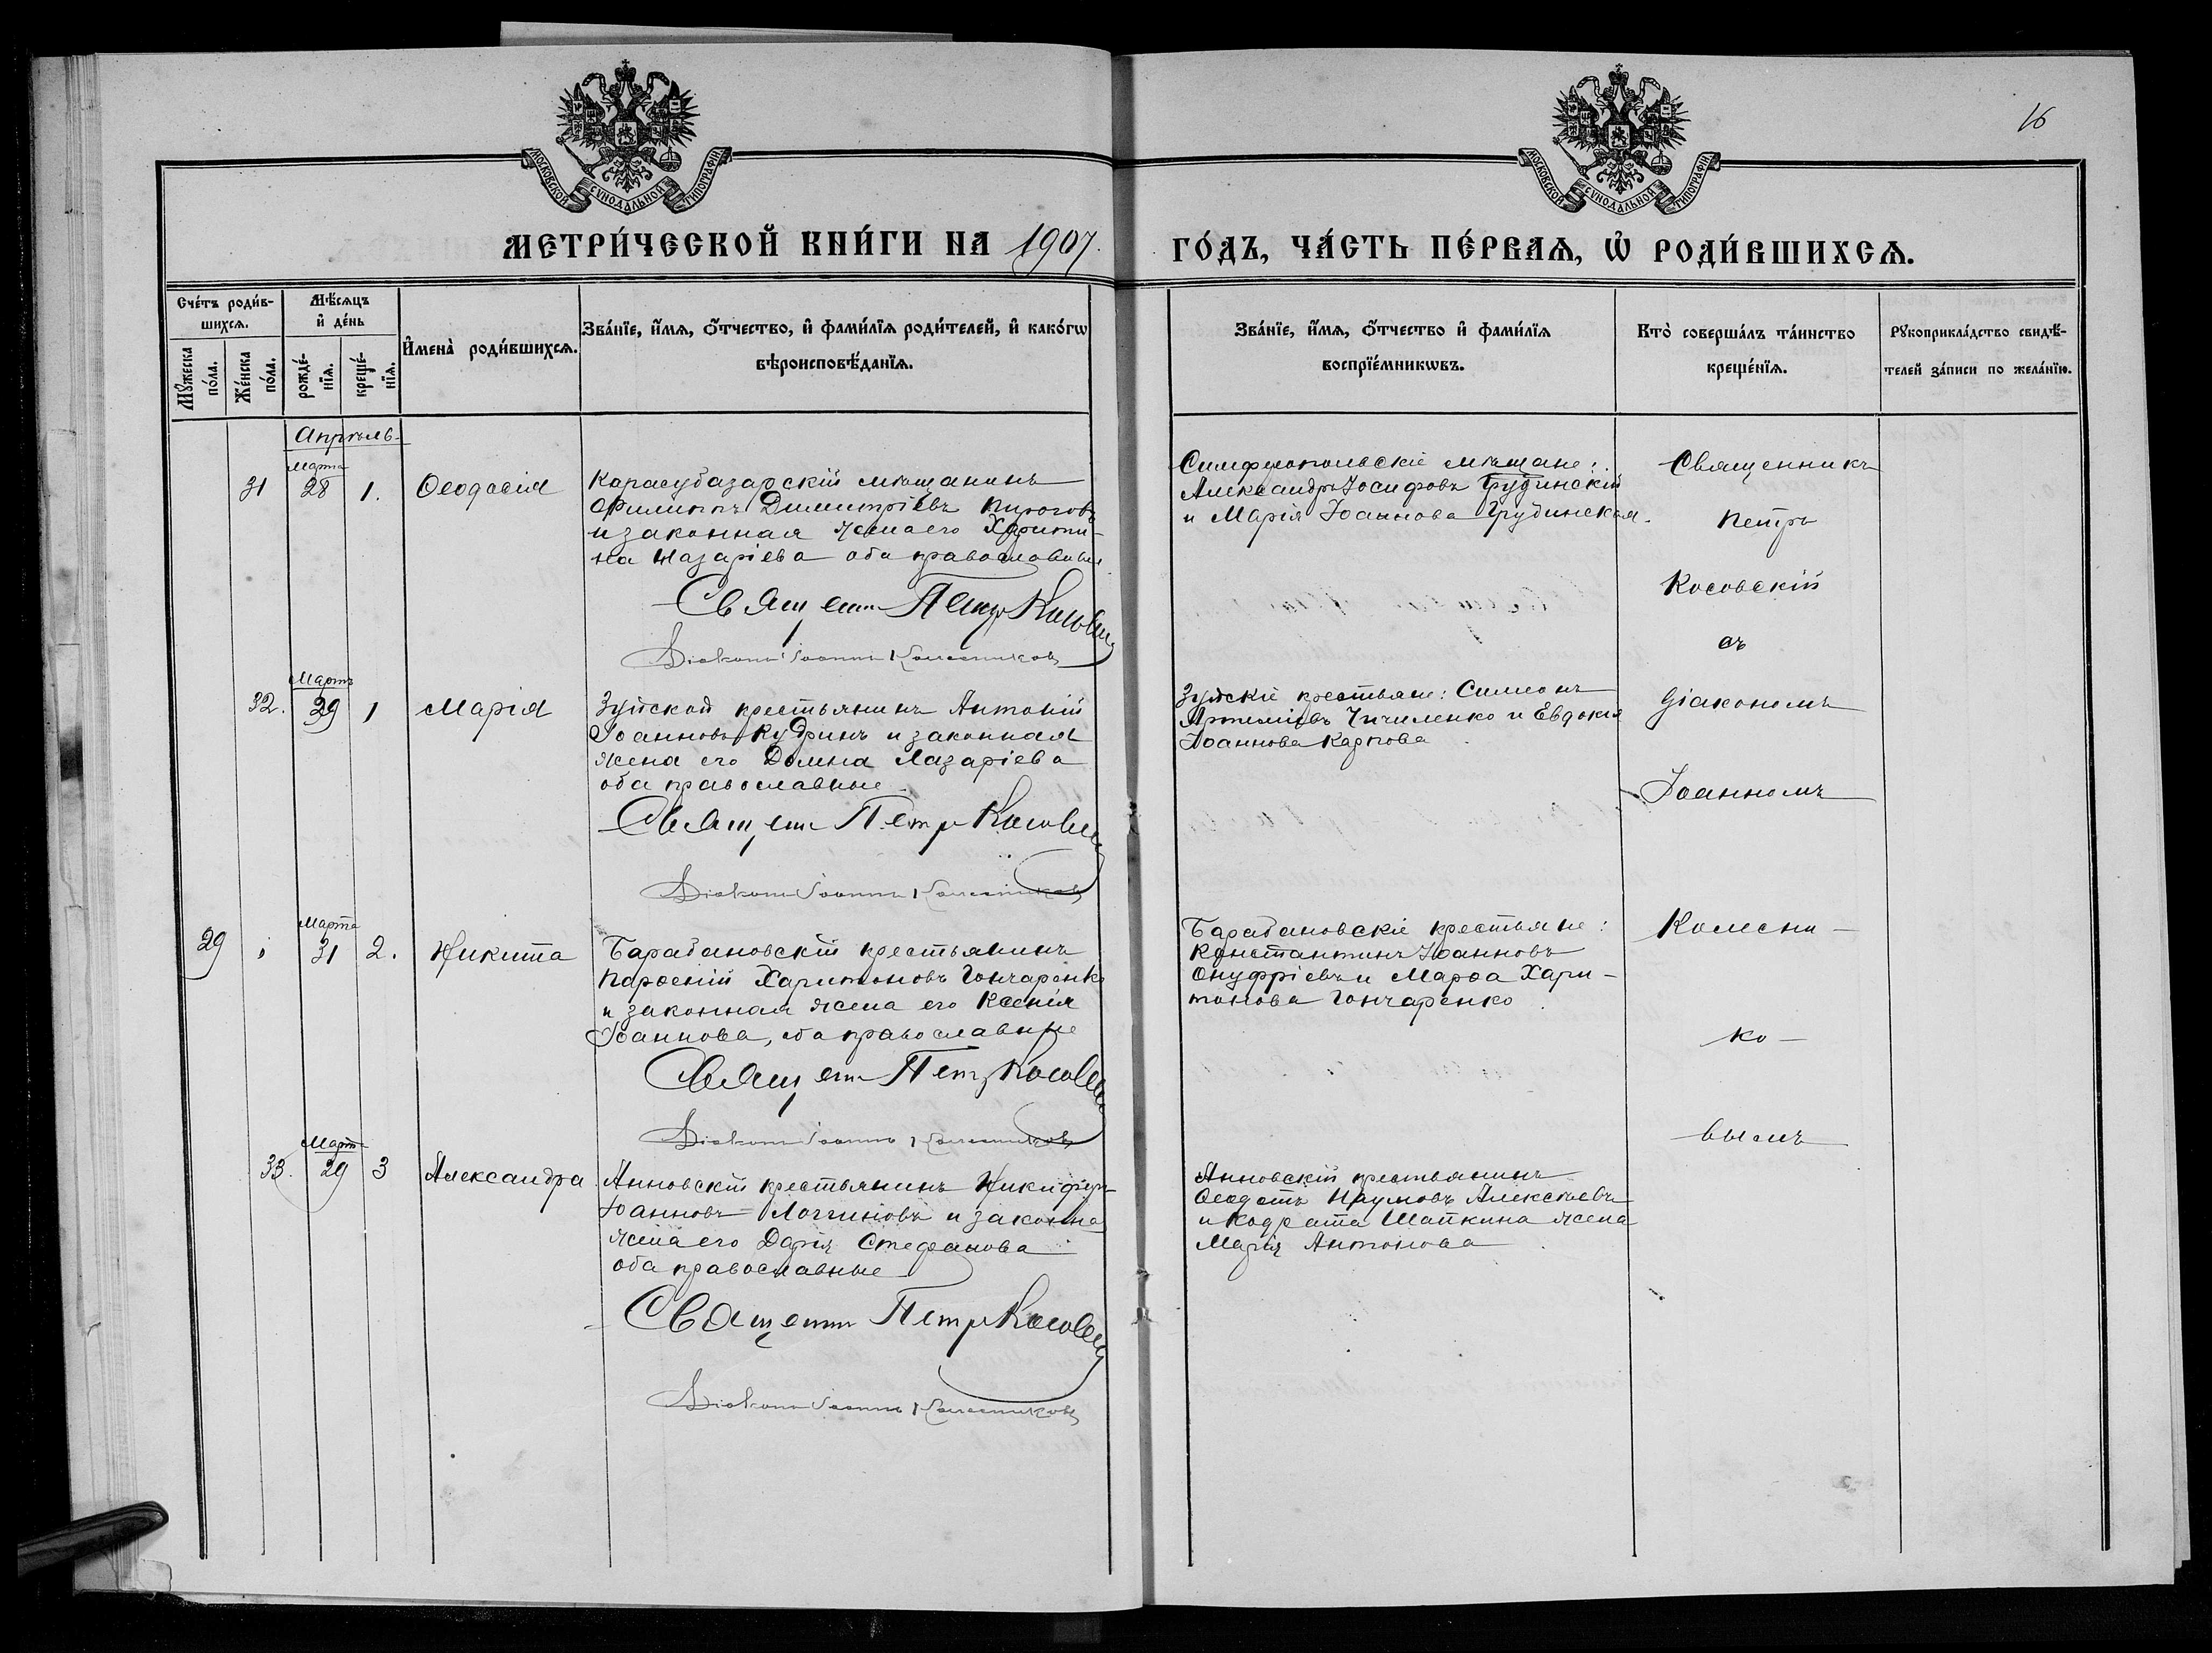 16
МОСКОВСКОЙ СѴНОДАЛЬНОЙ ТИПОГРАФІИ
МОСКОВСКОЙ СѴНОДАЛЬНОЙ ТИПОГРАФІИ
МЕТРИ́ЧЕСКОЙ КНИ́ГИ НА 1907. ГО́ДЪ, ЧА́СТЬ ПЕ́РВАѦ, Ѡ҆ РОДИ́ВШИХСѦ.
Сче́тъ роди́в-
шихсѧ.
Мꙋ́жеска
по́ла.
Же́нска
по́ла.
Мѣ́сѧцъ
и҆ де́нь
рожде́-
нїѧ.
креще́-
нїѧ.
И҆мена̀ роди́вшихсѧ.
Зва́нїе, и҆́мѧ, ѻ҆́тчество, и҆ фами́лїѧ роди́телей, и҆ како́гѡ
вѣроисповѣ́данїѧ.
Зва́нїе, и҆́мѧ, ѻ҆́тчество и҆ фами́лїѧ
воспрїе́мникѡвъ.
Кто̀ соверша́лъ та́инство
креще́нїѧ.
Рꙋкоприкла́дство свидѣ́-
телей за́писи по жела́нїю.
Апрѣль
31
Марта
28
1.
Ѳеодосія
Карасубазарскій мѣщанинъ
Филиппъ Димитріевъ Пироговъ
и законная жена его Харити-
на Назаріева оба православные.
Священн Петр Косовск
Діаконъ Іоаннъ Колесниковъ
Симферопольскіе мѣщане:
Александръ Іосифовъ Грудинскій
и Марія Іоаннова Грудинская.
Священникъ
Петръ
Косовскій
съ
32.
Мартъ
29
1
Марія
Зуйской крестьянинъ Антоній
Іоанновъ Кудринъ и законная
жена его Домна Лазаріева
оба православные.
Священн Петр Косовск
Діаконъ Іоаннъ Колесниковъ
Зуйскіе крестьяне: Симеонъ
Артеміевъ Чичиленко и Евдокія
Іоаннова Карпова.
Діакономъ
Іоанномъ
29
Марта
31
2.
Никита
Барабановскій крестьянинъ
Парѳеній Харитоновъ Гончаренко
и законная жена его Ксенія
Іоаннова, оба православные
Священн Петр Косовск
Діаконъ Іоаннъ Колесниковъ
Барабановскіе крестьяне:
Константинъ Іоанновъ
Онуфріевъ и Марѳа Хари-
тонова Гончаренко.
Колесни-
ко-
вымъ
33.
Март
29
3
Александра
Анновскій крестьянинъ Никифоръ
Іоанновъ Логгиновъ и законная
жена его Дарія Стефанова
оба православные
Священн Петр Косовск
Діаконъ Іоаннъ Колесниковъ
Анновскій крестьянинъ
Ѳеодотъ Наумовъ Алексѣевъ
и Кодрата Шапкина жена
Марія Антонова.